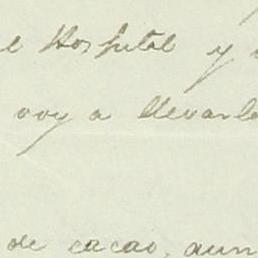 el Hospital y
voy a llevarle
de cacao, aun